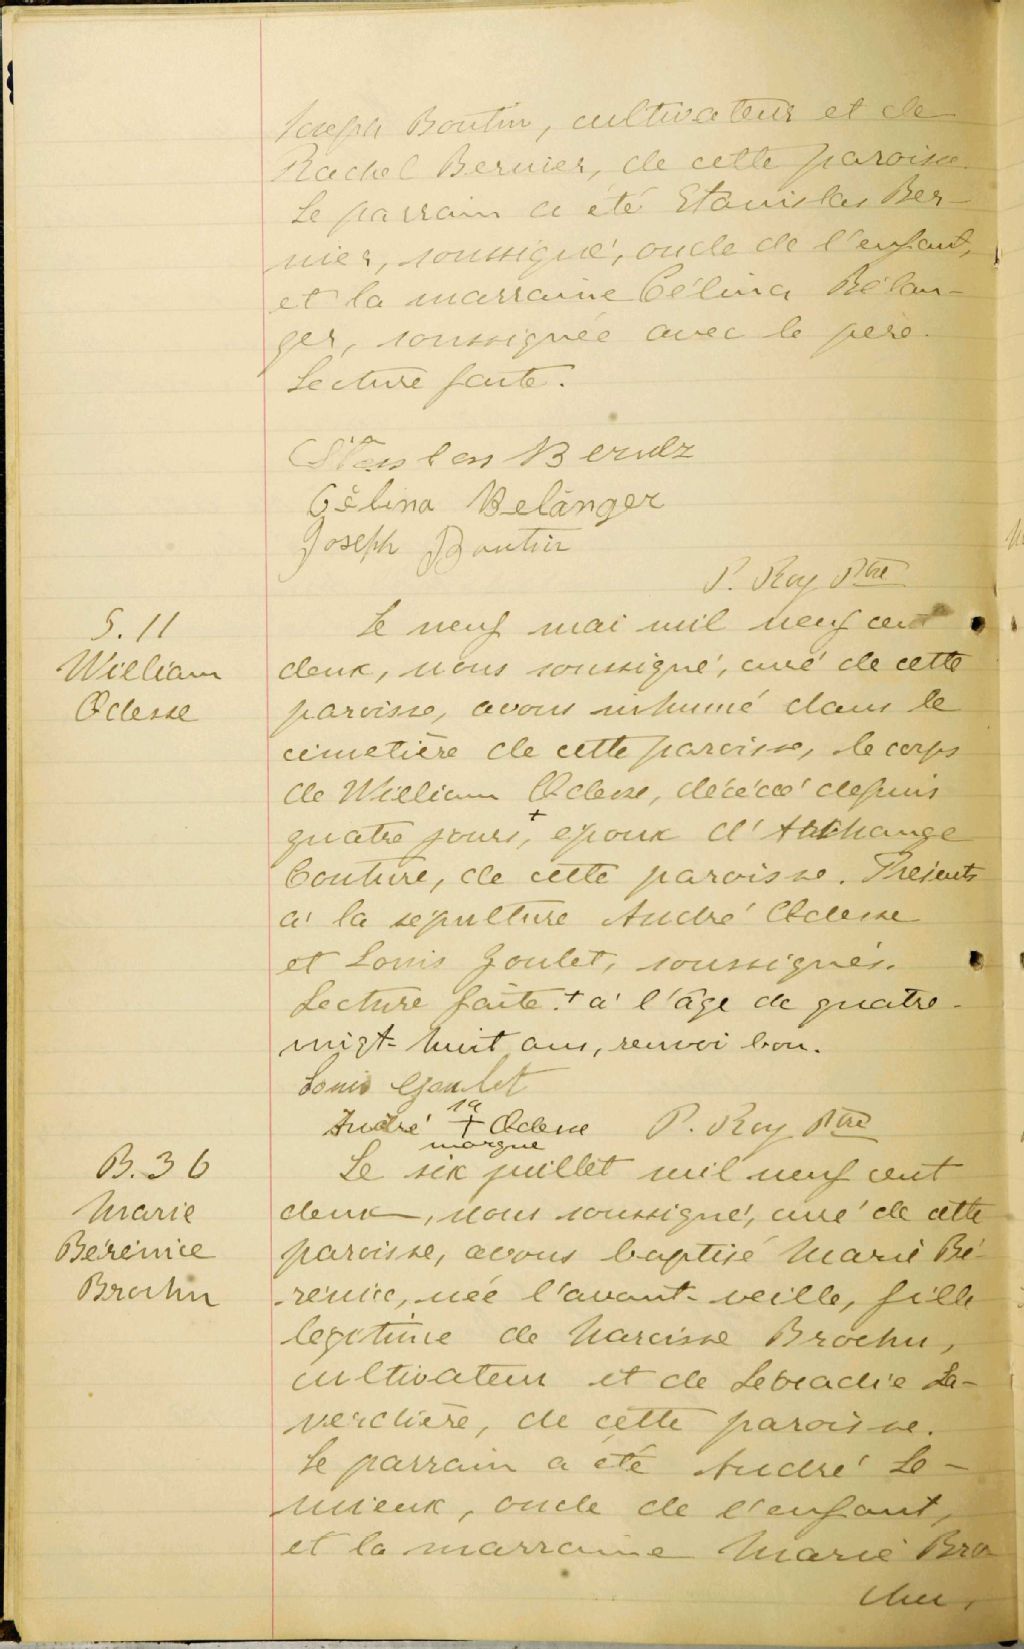 Joseph Boutin, cultivateur et de
Rachel Bernier, de cette paroisse.
Le parrain a été Stanislas Ber-
nier, soussigné, oncle de l'enfant,
et la marraine Célina Bélan-
ger, soussignée avec le père.
Lecture faite.
Célina Belanger
Joseph Boutin
P. Roy Ptre
S. 11
William
Odesse
Le neuf mai mil neuf cent
deux, nous soussigné, curé de cette
paroisse, avons inhumé dans le
cimetière de cette paroisse, le corps
de William Odesse, décédé depuis
quatre jours,+ epoux d'Archange
Couture, de cette paroisse. Présents
à la sepulture André Odesse
et Louis Goulet, soussignés.
Lecture faite. + à l'âge de quatre-
vingt-huit ans, renvoi bon.
Louis Goulet
sa
André + Odesse P. Roy Ptre
marque
B. 36
Marie
Bérénice
Brochu
Le six juillet mil neuf cent
deux, nous soussigné, curé de cette
paroisse, avons baptisé Marie Bé-
rénice, née l'avant-veille, fille
legitime de Narcisse Brochu,
cultivateur et de Léocadie La-
verdière, de cette paroisse.
Le parrain a été André Le-
mieux, oncle de l'enfant,
et la marraine Marie Bro
chu,